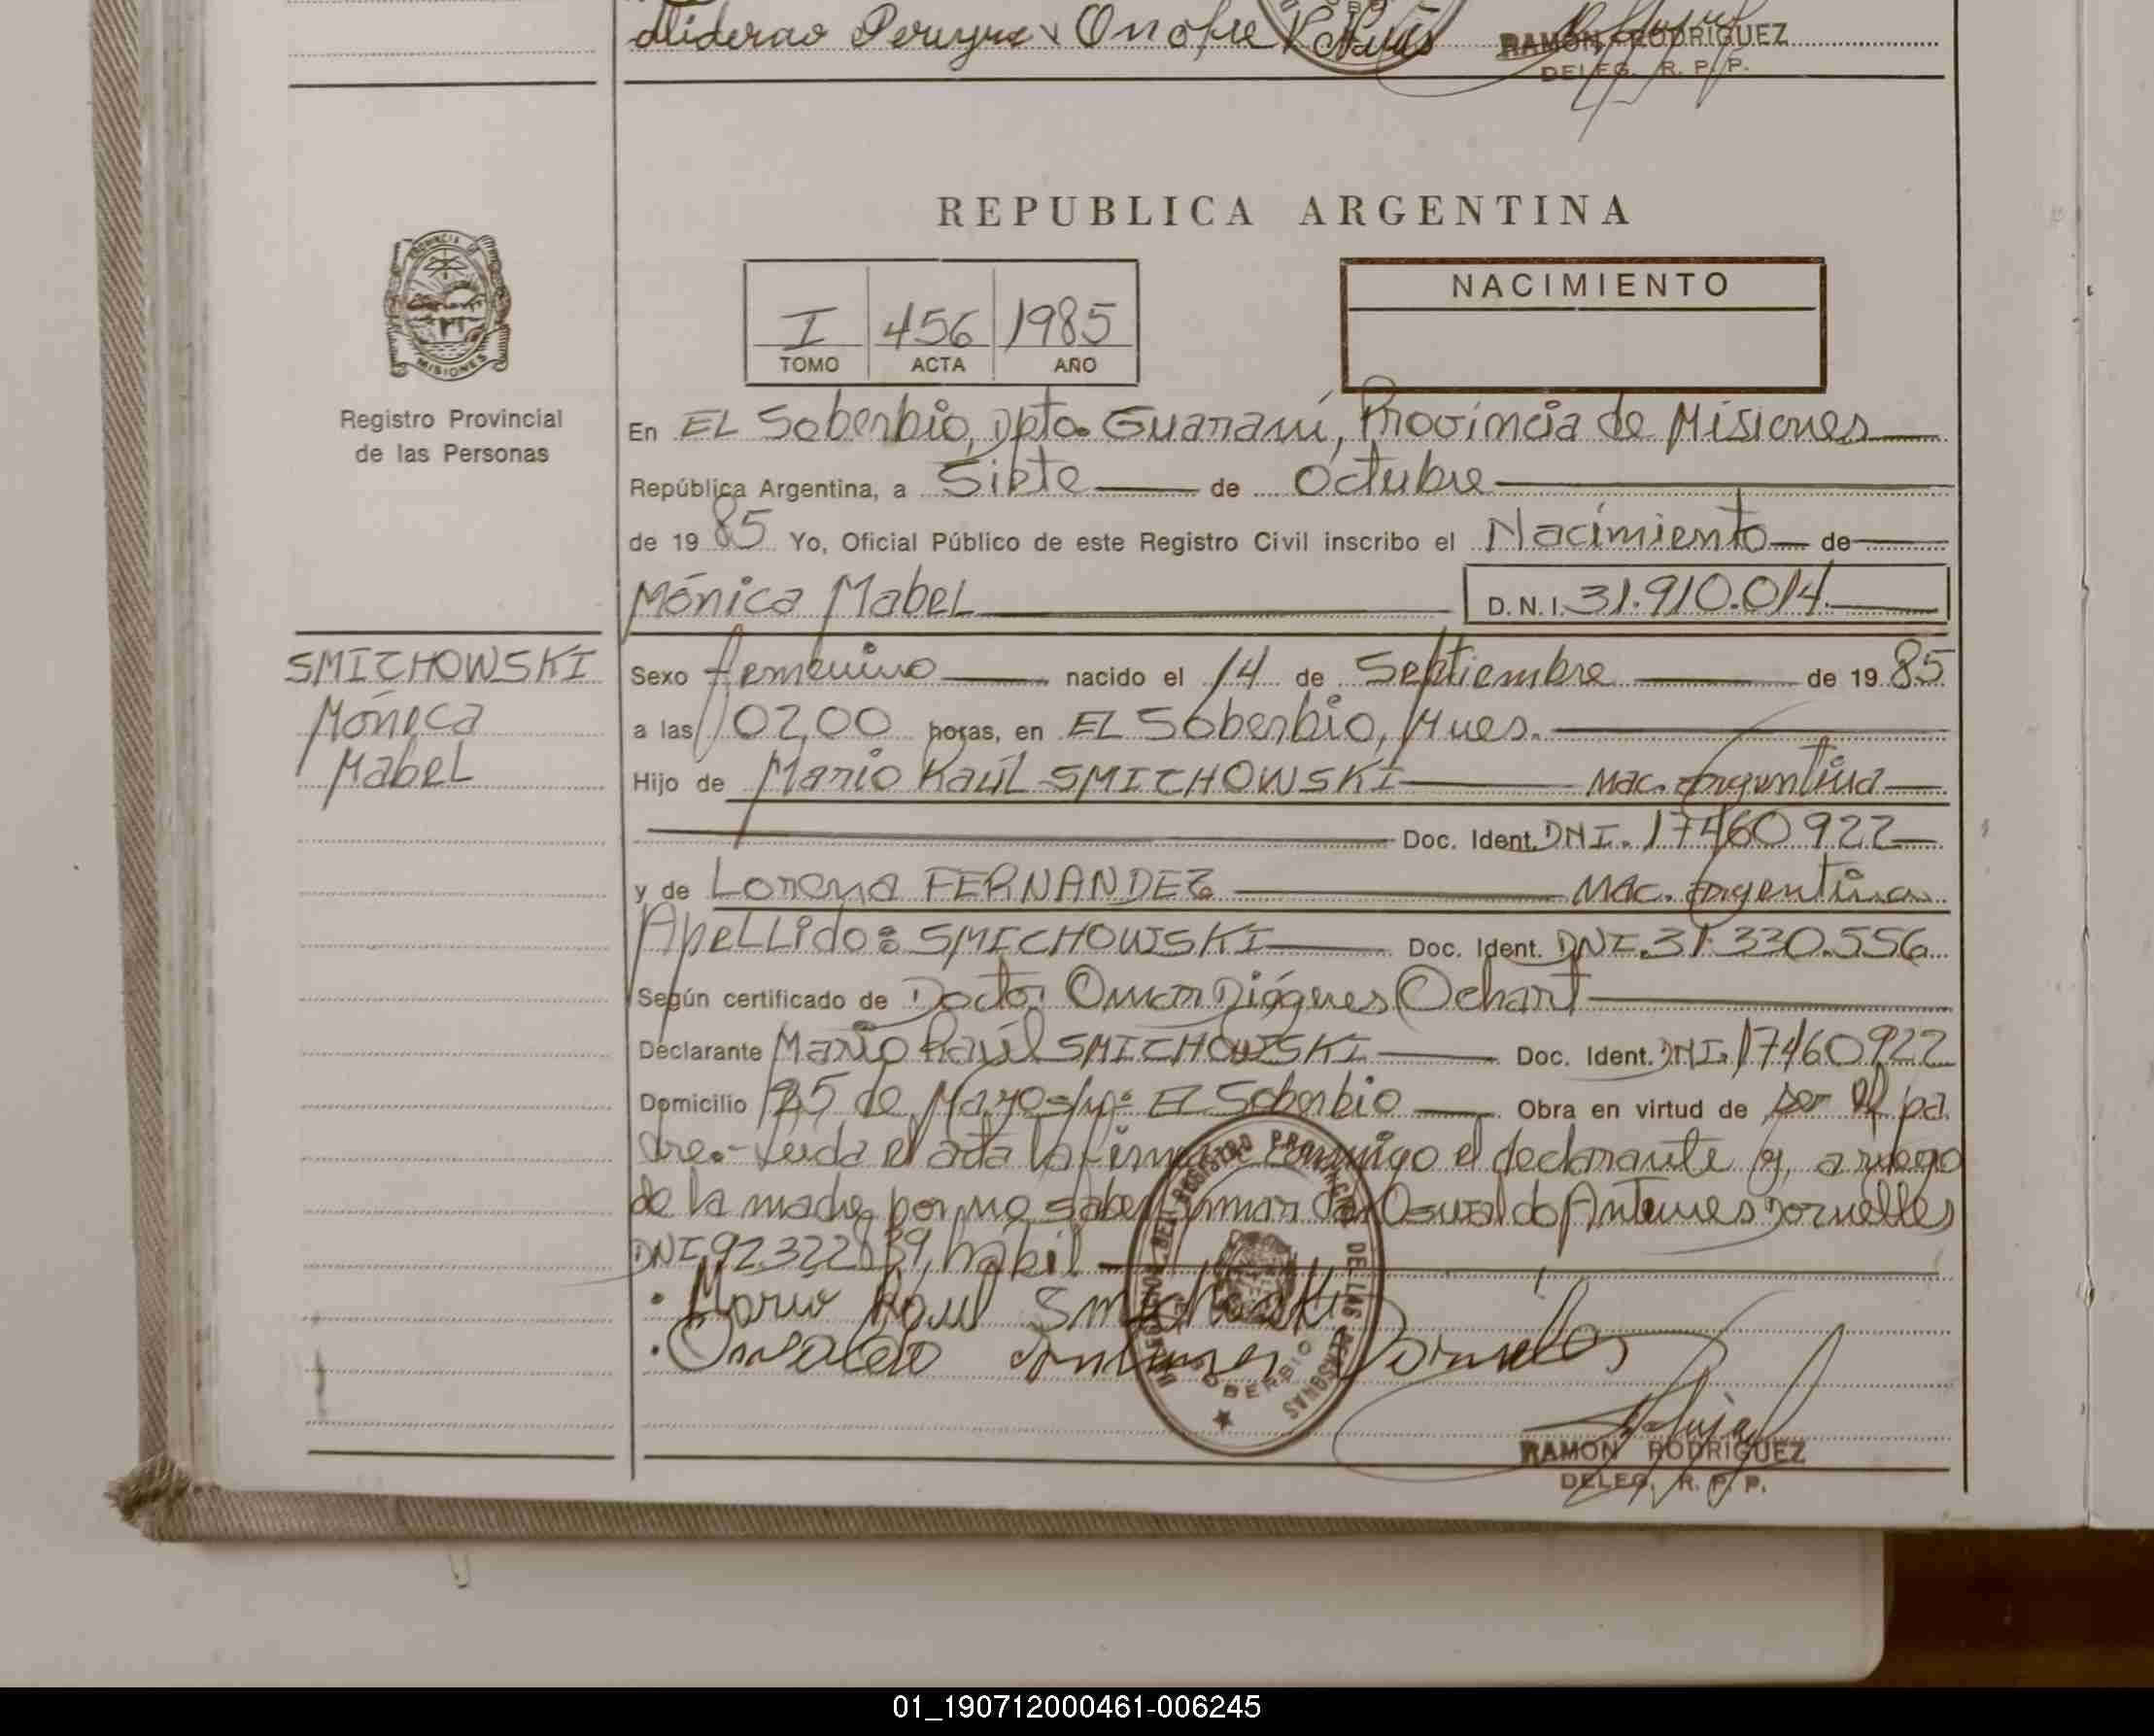 Pereyra y Onofre
RAMON RODRIGUEZ
DELEG. R. P. P.
REPUBLICA ARGENTINA
PROVINCIA DE
MISIONES
Registro Provincial
de las Personas
I 456 1985
TOMO ACTA AÑO
NACIMIENTO
En EL Soberbio, Dpto. Guaraní, Provincia de Misiones
República Argentina, a Siete de Octubre
de 1985 Yo, Oficial Público de este Registro Civil inscribo el Nacimiento de
Mónica Mabel D.N.I. 31.910.014
SMICHOWSKI
Mónica
Mabel
Sexo femenino nacido el 14 de Septiembre de 1985
a las 02,00 horas, en EL Soberbio, Mnes.
Hijo de Mario Raúl SMICHOWSKI Nac. Argentina
Doc. Ident. DNI. 17460922
y de Lorena FERNANDEZ Nac. Argentina
Apellido: SMICHOWSKI Doc. Ident. DNI. 31.330.556
Según certificado de Doctor Omar Diógenes Ochart
Declarante Mario Raúl SMICHOWSKI Doc. Ident. DNI. 17460922
Domicilio 25 de Mayo s/nº EL Soberbio Obra en virtud de ser el pa
dre.- Leida el acta la firma conmigo el declarante y, a ruego
de la madre por no saber firmar Don Osvaldo Antunes Dornelles
DNI 92.322.839, hábil
Mario Raul Smichowski
Osvaldo Antunes Dornelles
REGISTRO PROVINCIAL DE LAS PERSONAS
SOBERBIO
RAMON RODRIGUEZ
DELEG. R. P. P.
01_190712000461-006245